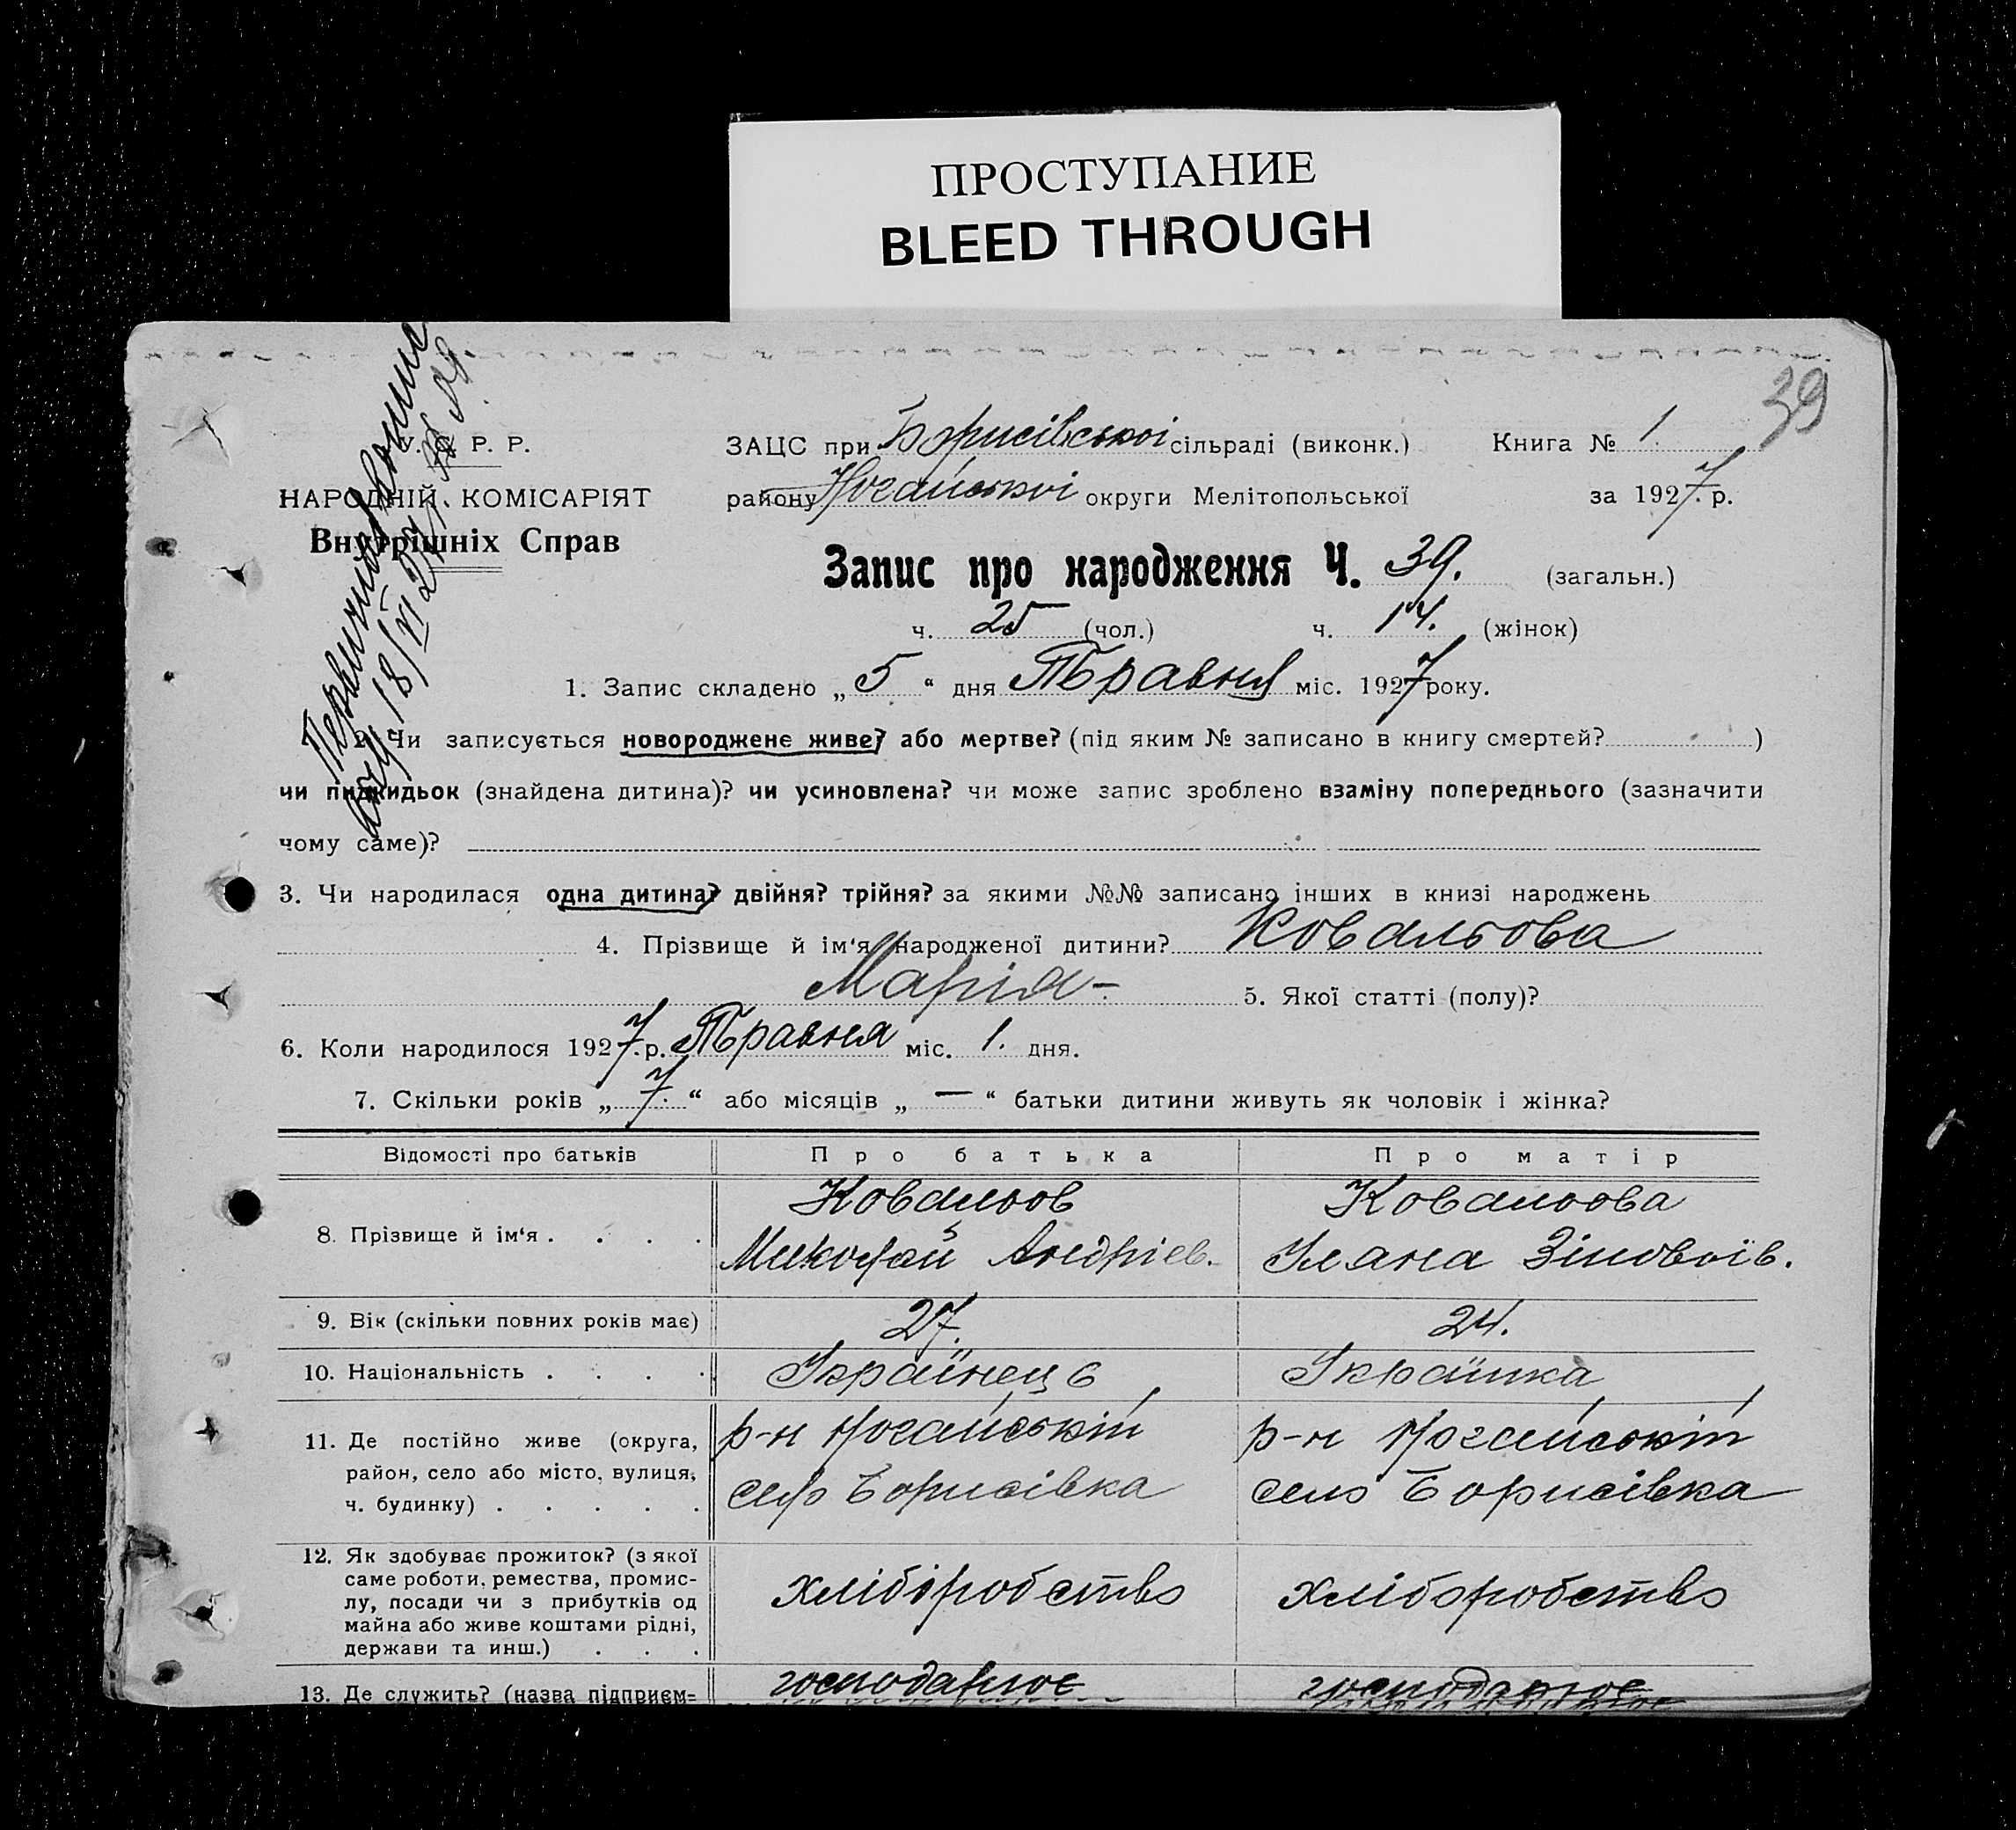 ПРОСТУПАНИЕ
BLEED THROUGH
39
У. С. Р. Р.
НАРОДНІЙ КОМІСАРІЯТ
Внутрішніх Справ
18/VI 27
ЗАЦС при Борисівської сільраді (виконк.) Книга № 1.
району Ногайської округи Мелітопольської за 1927 р.
Запис про народження Ч. 39. (загальн.)
ч. 25 (чол.) ч. 14. (жінок)
1. Запис складено „5“ дня Травня міс. 1927 року.
2. Чи записується новороджене живе? або мертве? (під яким № записано в книгу смертей? )
чи підкидьок (знайдена дитина)? чи усиновлена? чи може запис зроблено взаміну попереднього (зазначити
чому саме)?
3. Чи народилася одна дитина? двійня? трійня? за якими №№ записано інших в книзі народжень
4. Прізвище й ім‘я народженої дитини? Ковальова
Марія - 5. Якої статті (полу)?
6. Коли народилося 1927. р. Травня міс. 1. дня.
7. Скільки років „7.“ або місяців „—“ батьки дитини живуть як чоловік і жінка?
Відомості про батьків Про батька Про матір
8. Прізвище й ім‘я . . . . Ковальов Ковальова
Миколай Андрієв. Уляна Зіновоїв.
9. Вік (скільки повних років має) 27. 24.
10. Національність . . . . Українець Українка
11. Де постійно живе (округа, р-н Ногайській р-н Ногайській
район, село або місто, вулиця, село Борисівка село Борисівка
ч. будинку) . . . . .
12. Як здобуває прожиток? (з якої
саме роботи, ремества, промис-
лу, посади чи з прибутків од хлібіробство хліборобство
майна або живе коштами рідні,
держави та инш.) . . .
13. Де служить? (назва підприєм- господарює господарює